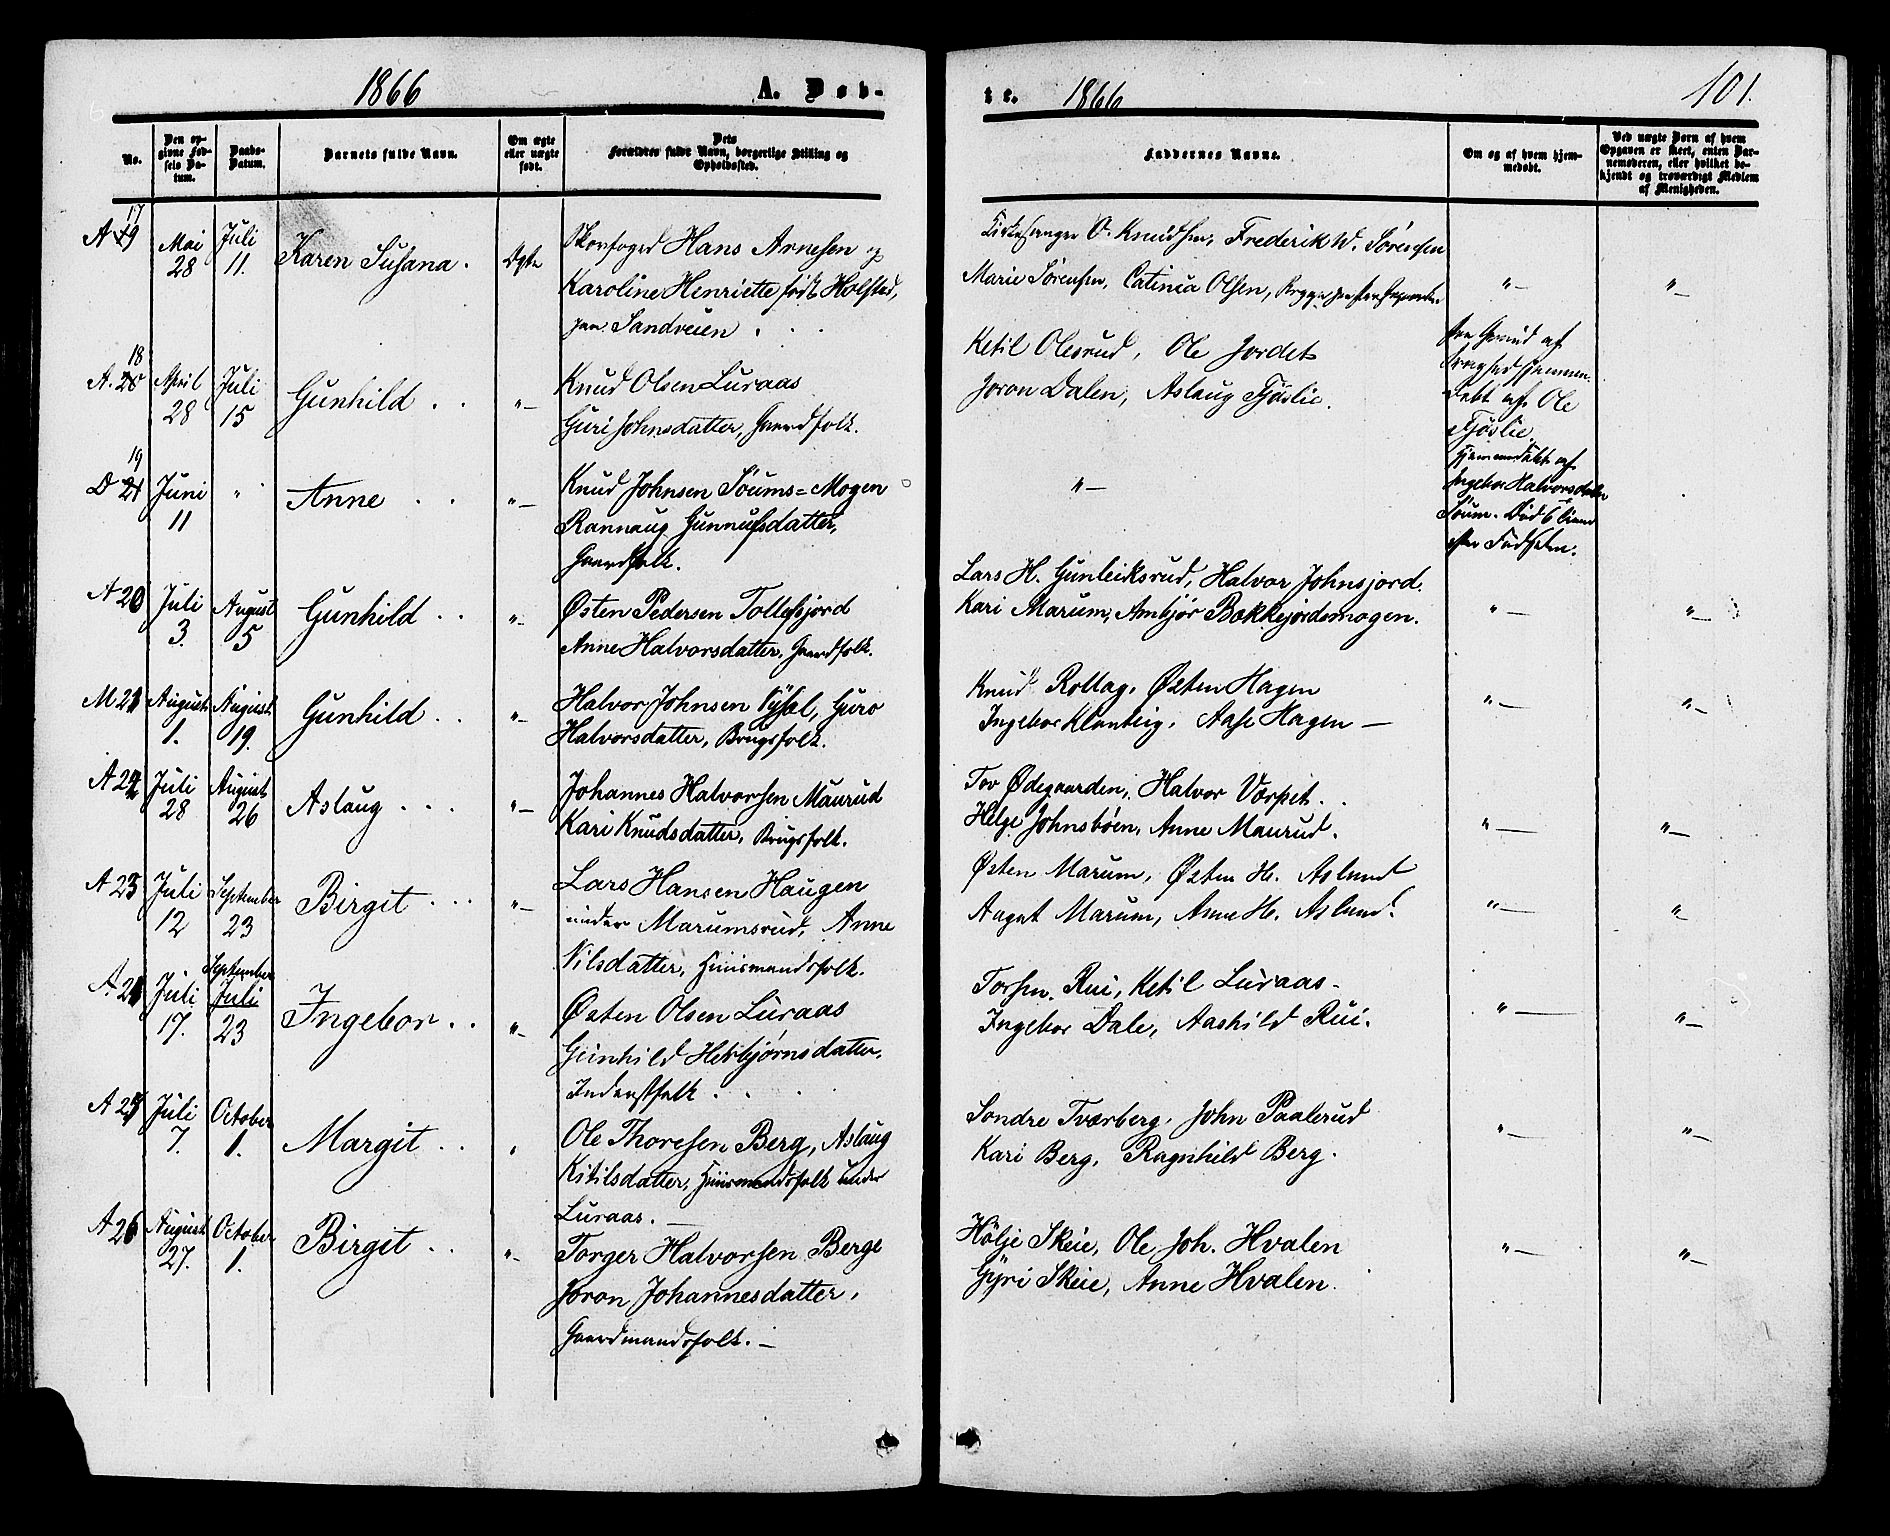 1866
A. Døb-
No.
Den op-
givne Fød-
sels Da-
tum.
Daabs-
Datum.
Barnets fulde Navn.
Om ægte
eller uægte
født.
Dets
Forældres fulde Navn, borgerlige Stilling og
Opholdssted.
A 19 17
Mai
28
Juli
11.
Karen Susana.
Ægte
Skovfoged Hans Arnesen og
Karoline Henriette født Holsted,
paa Sandveien .
A. 20 18
April
28
Juli
15
Gunhild . .
"—
Knud Olsen Luraas
Guri Johnsdatter, Gaardfolk.
D 21 19
Juni
11
"
Anne . .
"—
Knud Johnsen Söums=Mogen
Rannaug Gunnufsdatter,
Gaardfolk.
A 20
Juli
3.
August
5
Gunhild . .
"—
Østen Pedersen Tollefsjord
Anne Halvorsdatter, Gaardfolk.
M 21
August
1.
August
19.
Gunhild . .
"—
Halvor Johnsen Guro
Halvorsdatter, Brugsfolk.
A 22
Juli
28
August
26
Aslaug . . .
"—
Johannes Halvorsen Maurud
Kari Knudsdatter, Brugsfolk.
A 23
Juli
12
September
23
Birgit . . .
"—
Lars Hansen Haugen
under Marumsrud, Anne
Nilsdatter, Huusmandsfolk.
A. 24
Juli
17.
September
Juli
23
Ingebor . .
"—
Østen Olsen Luraas
Gunhild Herbjørnsdatter,
Inderstfolk .
A 25
Juli
7.
October
1.
Margit . .
"
Ole Thoresen Berg, Aslaug
Kitilsdatter, Huusmandsfolk under
Luraas. —
A 26
August
27.
October
1.
Birgit . .
"—
Torger Halvorsen Berge
Joron Johannesdatter,
Gaardmandsfolk. —
te. 1866
101.
Faddernes Navne.
Om og af hvem hjem-
medøbt.
Ved uægte Børn af hvem
Opgaven er skeet, enten Bar-
nemoderen, eller hvilket be-
kjendt og troværdigt Medlem
af Menigheden.
Kirkesanger O. Knudsen, Frederik W. Sörensen
Marie Sörensen, Catinca Olsen,
"—
"—
Ketil Olesrud, Ole Jordet
Joron Dalen, Aslaug Tjöslie.
paa Grund af
Svaghed hjemme-
døbt af Ole
Tjöslie
"—
Hjemmedøbt af
Ingebor Halvorsdatter
Söum. Död 6 Timer
efter Födselen.
Lars H. Gunleiksrud, Halvor Johnsjord.
Kari Marum, Ambjör Bakkejordsmogen.
"—
"—
Knud Rollag, Østen Hagen
Ingebor Aase Hagen —
"—
"—
Tov Ødegaarden, Halvor Varpit . .
Helge Johnsböen, Anne Maurud.
"—
"—
Østen Marum, Østen H. Aslund
Aagot Marum, Anne H. Aslund.
"—
"
Rui, Ketil Luraas-
Ingebor Dale, Aashild Rui.
"—
"—
Sondre Tværberg, John Paalerud
Kari Berg, Ragnhild Berg.
"—
"—
Hölje Skeie, Ole Joh. Hvalen
Gyri Skeie, Anne Hvalen.
"—
"—